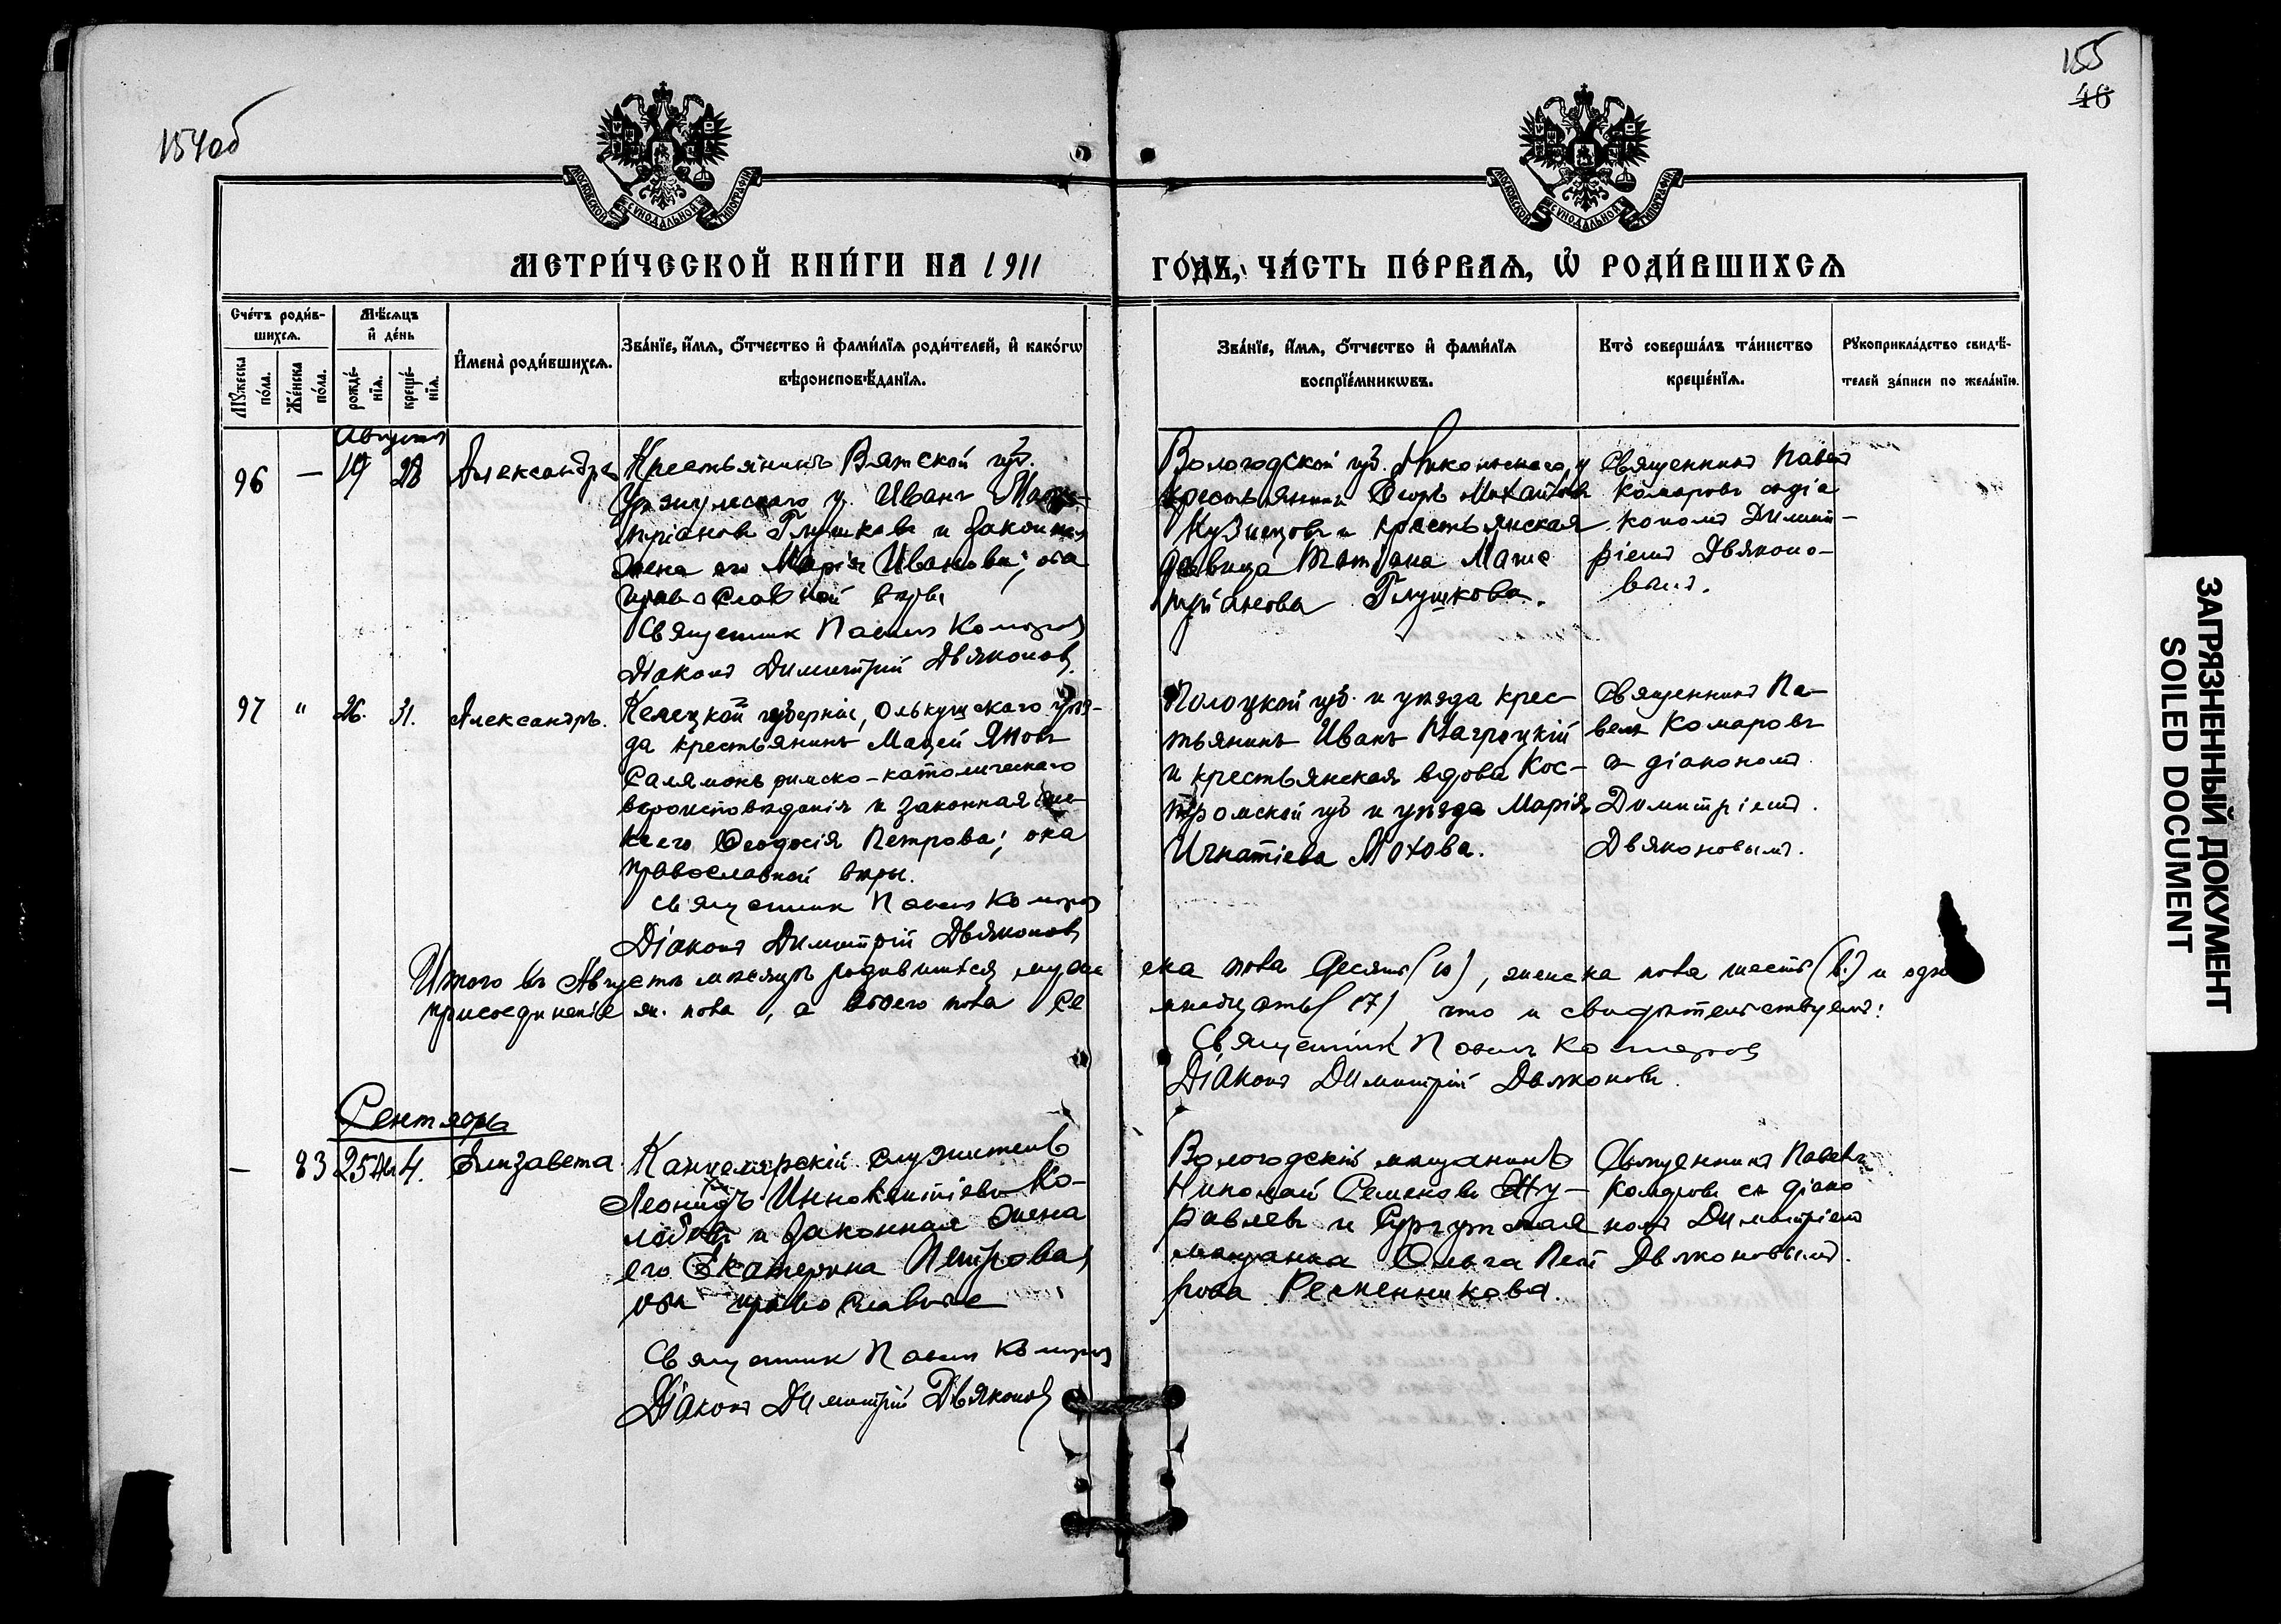 154об
155
46
МОСКОВСКОЙ СѴНОДАЛЬНОЙ ТИПОГРАФІИ
МОСКОВСКОЙ СѴНОДАЛЬНОЙ ТИПОГРАФІИ
МЕТРИ́ЧЕСКОЙ КНИ́ГИ НА 1911
ГО́ДЪ, ЧА́СТЬ ПЕ́РВАѦ, Ѡ РОДИ́ВШИХСѦ
Сче́тъ роди́в-
шихсѧ.
Мѣ́сѧцъ
и҆ де́нь
Мꙋ́жеска
по́ла.
Же́нска
по́ла.
рожде́-
нїѧ.
креще́-
нїѧ.
И҆мена̀ роди́вшихсѧ.
Зва́нїе, и҆́мѧ, ѻ҆́тчество и҆ фами́лїѧ роди́телей, и҆ како́гѡ
вѣроисповѣ́данїѧ.
Зва́нїе, и҆́мѧ, ѻ҆́тчество и҆ фами́лїѧ
воспрїе́мникѡвъ.
Кто̀ соверша́лъ та́инство
креще́нїѧ.
Рꙋкоприкла́дство свидѣ́-
телей за́писи по жела́нїю.
Августъ
96 — 19 28 Александръ
Крестьянинъ Вятской губ.
Уржумскаго у. Иванъ
Глушковъ и законная
жена его Марія Иванова; оба
православной вѣры
Священник Павелъ Комаров
Діаконъ Димитрій Двяконов
Вологодской губ. Никольскаго у
крестьянинъ Егоръ Михайловъ
Кузнецовъ и крестьянская
дѣвица Татіана
Глушкова.
Священникъ Павелъ
Комаровъ съ діа
кономъ Димит-
ріемъ Двяконо-
вымъ.
97 " 26. 31. Александръ.
Келецкой губерніи, Олькушскаго уѣз-
да крестьянинъ Мацей Яновъ
Салямонъ римско-католическаго
вѣроисповѣданія и законная же-
на его Ѳеодосія Петрова; она
православной вѣры.
Священник Павелъ Комаров
Діаконъ Димитрій Двяконов
Полоцкой губ. и уѣзда крес-
тьянинъ Иванъ
и крестьянская вдова Кос-
тромской губ и уѣзда Марія
Игнатіева Мохова.
Священникъ Па-
велъ Комаровъ
съ діакономъ
Димитріемъ
Двяконовымъ.
Итого въ Августѣ мѣсяцѣ родившихся муже ска пола десять (10), женска пола шесть (6.) и одно
присоединеніе м. пола, а обоего пола се мнадцать (17) что и свидѣтельствуемъ:
Священник Павелъ Комаров
Діаконъ Димитрій Двяконовъ.
Сентябрь
— 83 25 Ав 4. Елизавета
Канцелярскій служитель
Леонидъ Иннокентіевъ Ко-
и законная жена
его Екатерина Петрова,
оба православные
Священник Павелъ Комаров
Діаконъ Димитрій Двяконов
Вологодскій мѣщанинъ
Николай Семеновъ Жу-
равлевъ и Сургутская
мѣщанка Ольга Пет
рова Ременникова.
Священникъ Павелъ
Комаровъ съ діако
номъ Димитріемъ
Двяконовымъ.
ЗАГРЯЗНЕННЫЙ ДОКУМЕНТ
SOILED DOCUMENT